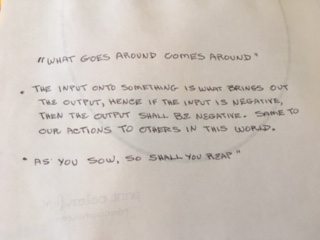 "WHAT GOES AROUND COMES AROUND"
• THE INPUT ONTO SOMETHING IS WHAT BRINGS OUT
THE OUTPUT, HENCE IF THE INPUT IS NEGATIVE,
THEN THE OUTPUT SHALL BE NEGATIVE. SAME TO
OUR ACTIONS TO OTHERS IN THIS WORLD.
"AS YOU SOW, SO SHALL YOU REAP"